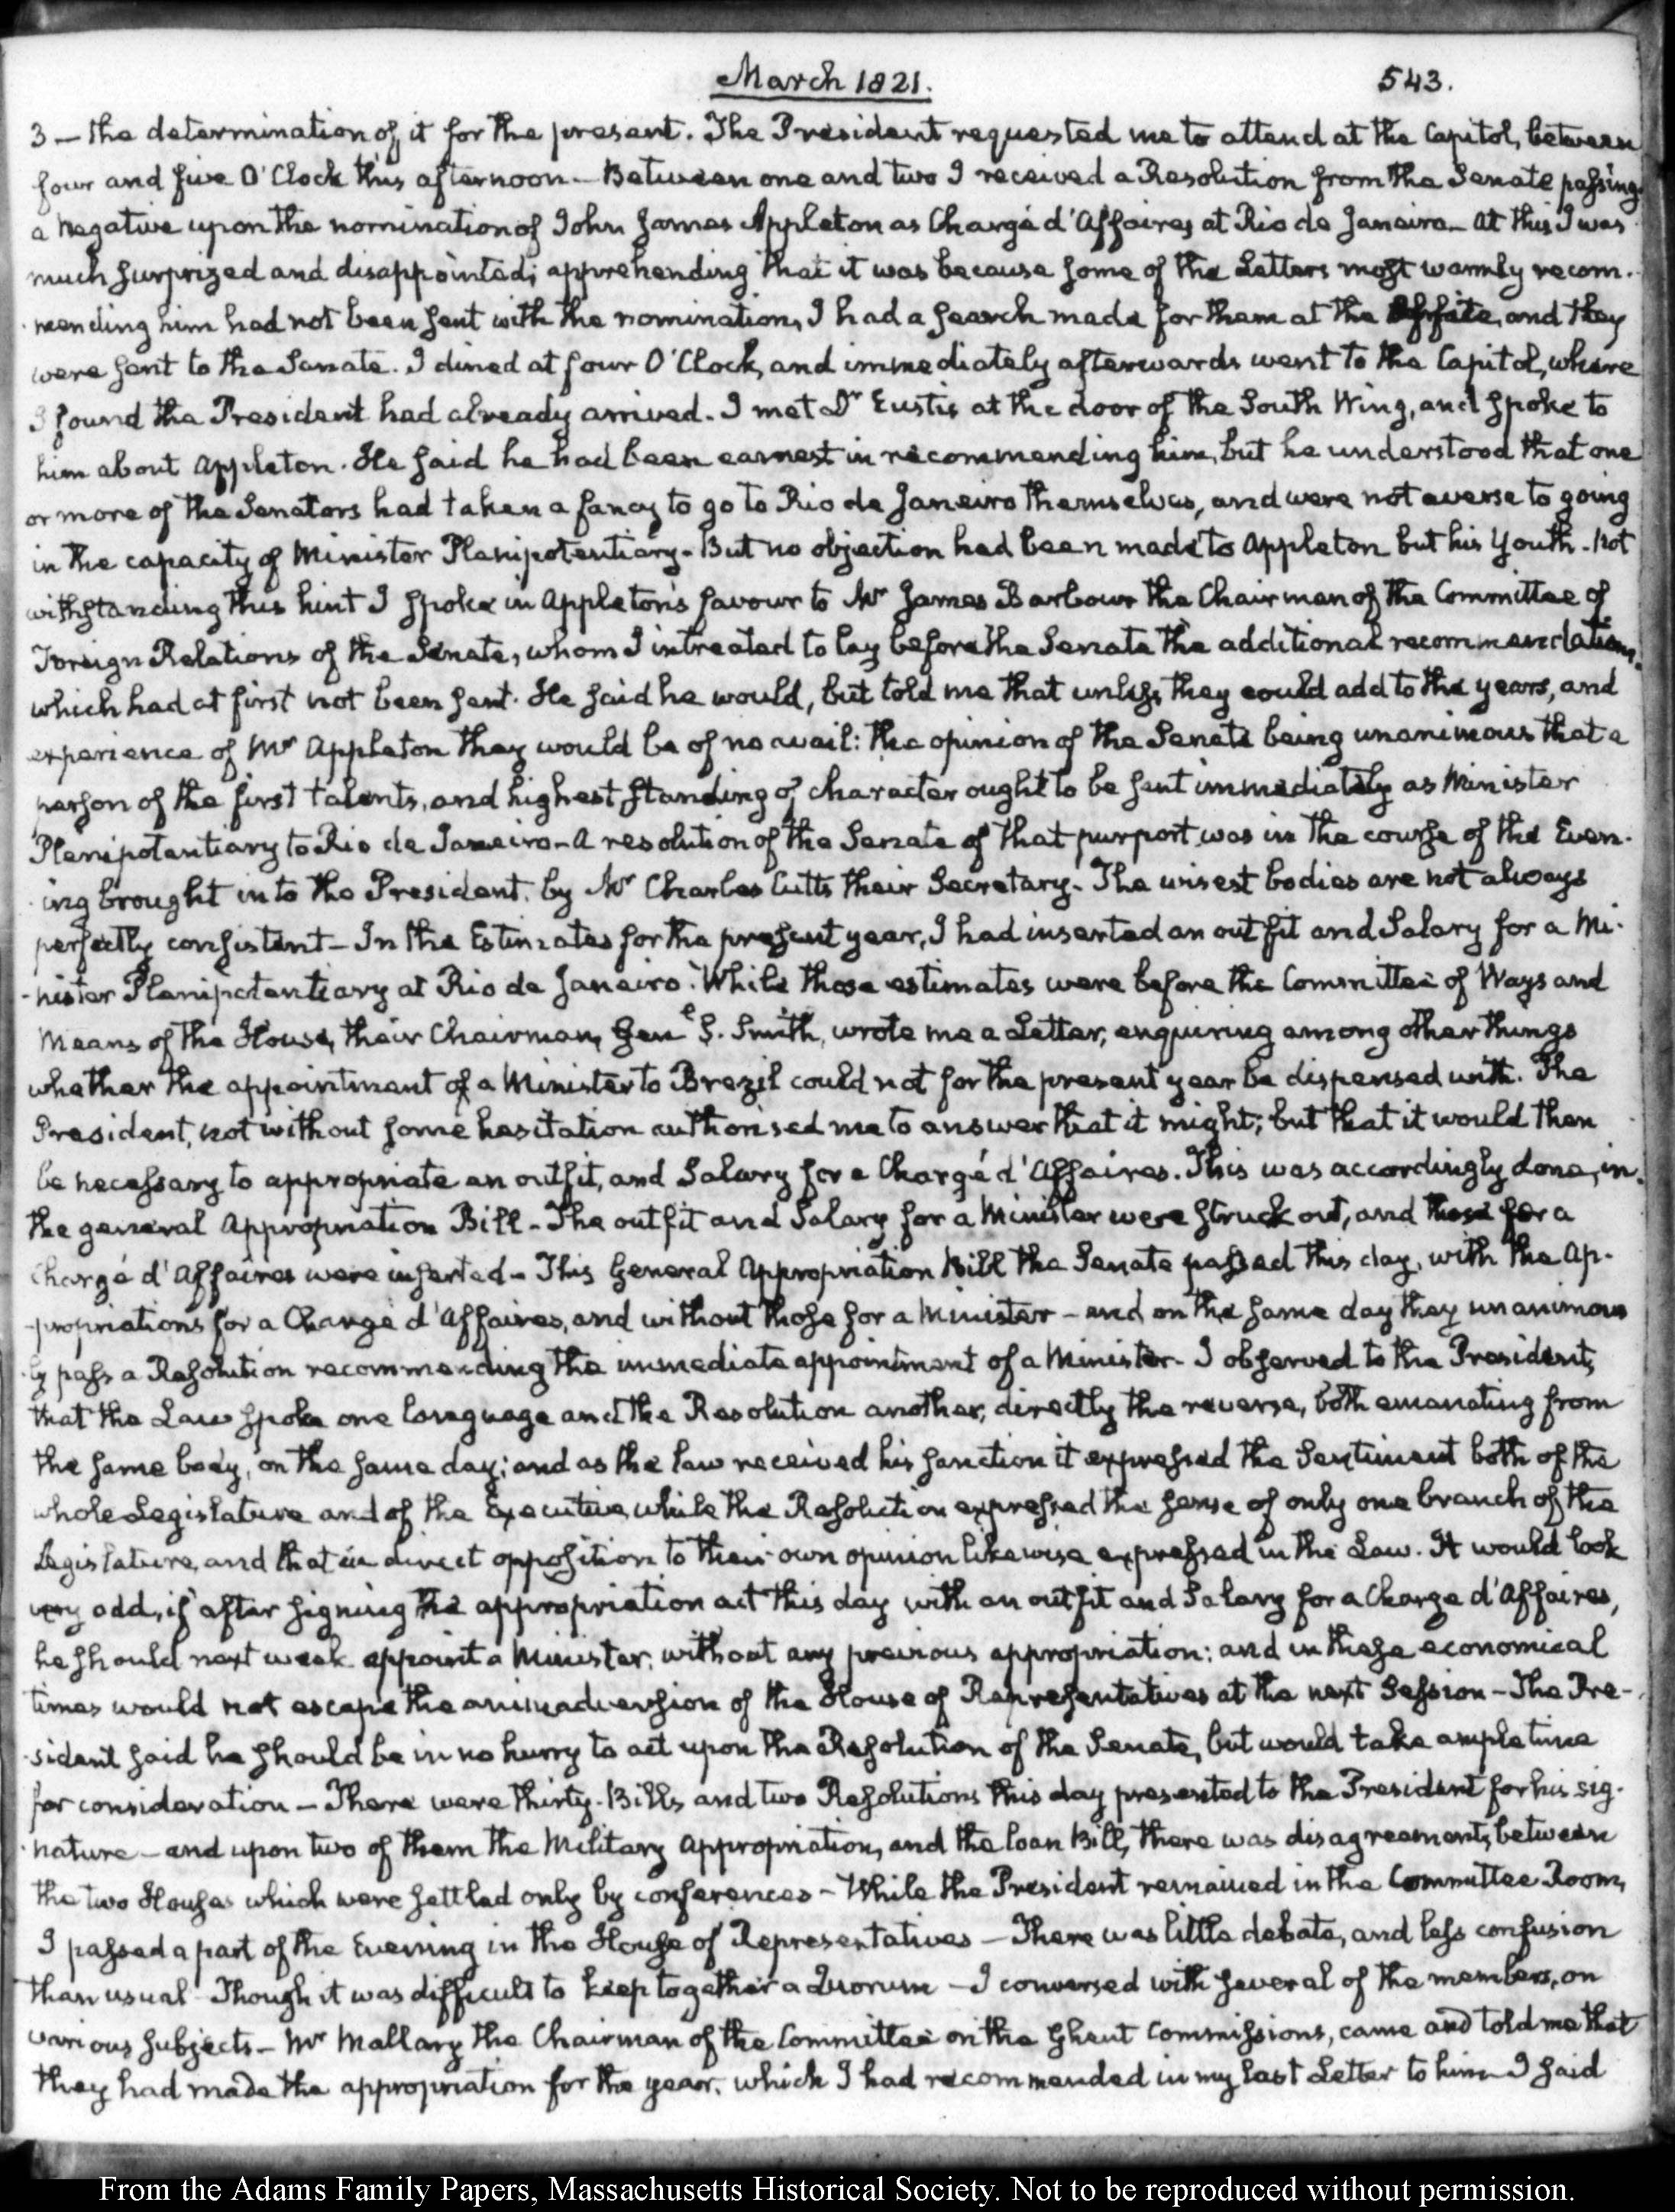 March 1821.
543.
3 — the determination of it for the present. The President requested me to attend at the Capitol, between
four and five O'Clock this afternoon — Between one and two I received a Resolution from the Senate passing
a Negative upon the nomination of John James Appleton as Chargé d'Affaires at Rio de Janeiro — At this I was
much surprized and disappointed; apprehending that it was because some of the Letters most warmly recom-
mending him had not been sent with the nomination, I had a search made for them at the Office, and they
were sent to the Senate. I dined at four O'Clock, and immediately afterwards went to the Capitol, where
I found the President had already arrived. I met Dr Eustis at the door of the South Wing, and spoke to
him about Appleton. He said he had been earnest in recommending him, but he understood that one
or more of the Senators had taken a fancy to go to Rio de Janeiro themselves, and were not averse to going
in the capacity of Minister Plenipotentiary — But no objection had been made to Appleton but his Youth — Not
withstanding this hint I spoke in Appleton's favour to Mr James Barbour the Chairman of the Committee of
Foreign Relations of the Senate, whom I intreated to lay before the Senate the additional recommendations,
which had at first not been sent. He said he would, but told me that unless they could add to the years, and
experience of Mr Appleton they would be of no avail: the opinion of the Senate being unanimous that a
person of the first talents, and highest standing of character ought to be sent immediately as Minister
Plenipotentiary to Rio de Janeiro — A resolution of the Senate of that purport was in the course of the Even-
ing brought in to the President, by Mr Charles Cutts their Secretary. The wisest bodies are not always
perfectly consistent — In the Estimates for the present year, I had inserted an outfit and Salary for a Mi-
-nister Plenipotentiary at Rio de Janeiro. While those estimates were before the Committee of Ways and
Means of the House, their Chairman, Gene S. Smith, wrote me a Letter, enquiring among other things
whether the appointment of a Minister to Brazil could not for the present year be dispensed with. The
President, not without some hesitation authorised me to answer that it might; but that it would then
be necessary to appropriate an outfit, and Salary for a Chargé d'Affaires. This was accordingly done, in
the general Appropriation Bill — The outfit and Salary for a Minister were struck out, and those for a
Chargé d'Affaires were inserted — This General Appropriation Bill the Senate passed this day, with the Ap-
-propriations for a Chargé d'Affaires, and without those for a Minister — and on the same day they unanimous
ly pass a Resolution recommending the immediate appointment of a Minister. I observed to the President,
that the Law spoke one language and the Resolution another, directly the reverse, both emanating from
the same body, on the same day; and as the law received his sanction it expressed the Sentiment both of the
whole Legislature and of the Executive, while the Resolution expressed the sense of only one branch of the
Legislature, and that in direct opposition to their own opinion likewise expressed in the Law. It would look
very odd, if after signing the appropriation act this day with an outfit and Salary for a Chargé d'Affaires,
he should next week appoint a Minister, without any previous appropriation: and in these economical
times would not escape the animadversion of the House of Representatives at the next Session — The Pre-
-sident said he should be in no hurry to act upon the Resolution of the Senate, but would take ample time
for consideration — There were thirty Bills and two Resolutions this day presented to the President for his sig-
nature — and upon two of them the Military Appropriation, and the loan Bill, there was disagreements between
the two Houses which were settled only by conferences — While the President remained in the Committee Room,
I passed a part of the Evening in the House of Representatives — There was little debate, and less confusion
than usual Though it was difficult to keep together a Quorum — I conversed with several of the members, on
various subjects — Mr Mallary the Chairman of the Committee on the Ghent Commissions, came and told me that
they had made the appropriation for the year, which I had recommended in my last Letter to him — I said
From the Adams Family Papers, Massachusetts Historical Society. Not to be reproduced without permission.